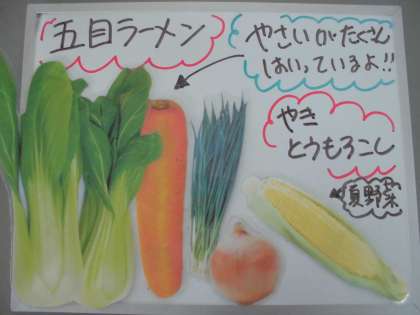 五目ラーメン
やさいがたくさん
はいっているよ!!
やき
とうもろこし
夏野菜